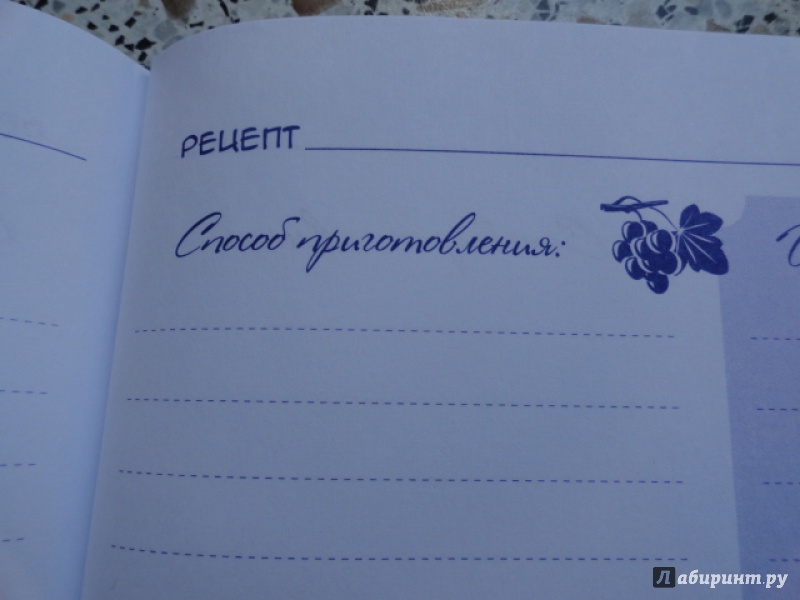 РЕЦЕПТ
Способ приготовления:
Лабиринт.ру